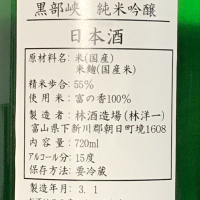 黒部峡 純米吟醸
日本酒
原材料名：米(国産)
米麹(国産米)
精米歩合：55%
使用米：富の香100%
製造者：林酒造場(林洋一)
富山県下新川郡朝日町境1608
内容量：720ml
アルコール分：15度
保存方法：要冷蔵
製造年月 3. 1